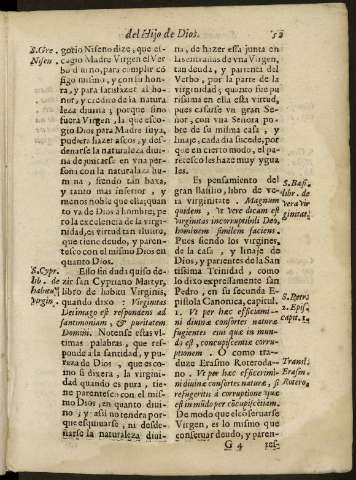 del Hijo de Dios.
52
S.Gre.
Nisen.
gorio Niseno dize, que es-
cogio Madre Virgen el Ver
bo diuino, para cumplir cõ
sigo mismo, y con su hon-
ra, y para satisfazer al ho-
nor, y credito de la natura
leza diuina; porque sino
fuera Virgen, la que esco-
gio Dios para Madre suya,
pudiera hazer ascos, y des-
denarse la naturaleza diui-
na de juntarse en vna per-
sona con la naturaleza hu
mana, siendo tan baxa,
y tanto mas inferior, y
menos noble que ella; quan
to va de Dios a hombre; pe
ro la excelencia de la virgi-
nidad, es virtud tan ilustre,
que tiene deudo, y paren-
tesco con el mismo Dios en
quanto Dios.
S.Cypr.
lib. de
habitu
Virgin.
Esso sin duda quiso de-
zir san Cypriano Martyr,
libro de habitu Virginis,
quando dixo: Virginitas
Dei imago est respondens ad
sanctimoniam, & puritatem
Domini. Notense estas vl-
timas palabras, que res-
ponde a la santidad, y pu-
reza de Dios, que es co-
mo si dixera, la virgini-
dad quando es pura, tie-
ne parentesco con el mis-
mo Dios, en quanto diui-
no; y assi no tendra por-
que esquiuarse, ni desde-
ñarse la naturaleza diui-
na, de hazer essa junta en
las entrañas de vna Virgen,
tan deuda, y parienta del
Verbo, por la parte de la
virginidad; quanto fue pu
rissima en ella esta virtud,
pues casarse vn gran Se-
ñor, con vna Señora po-
bre de su misma casa, y
linaje, cada dia sucede, por
que en cierto modo, el pa-
rentesco les haze muy ygua
les.
Es pensamiento del
gran Basilio, libro de ve-
ra virginitate. Magnum
quidem, & vere dicam est
virginitas incorruptibili Deo,
hominem similem faciens.
Pues siendo los virgines,
de la casa, y linaje de
Dios, y parientes de la San
tissima Trinidad, como
lo dixo expressamente san
Pedro, en su segunda E-
pistola Canonica, capitul.
1. Vt per hæc efficiami-
ni diuinæ consortes naturæ
fugientes eius quæ in mun-
do est, concupiscentiæ corru-
ptionem. O como tra-
duze Erasmo Roteroda-
no. Vt per hæc efficerimi-
ni diuinæ consortes naturæ, si
refugeritis à corruptione quæ
est in mũdo per cõcupiscẽtiam.
De modo que el cõseruarse
Virgen, es lo mismo que
conseruar deudo, y paren-
S.Basi.
libr. de
vera vir
ginitat.
S.Petr.
2. Epis.
capit. 1.
Transl.
Erasm.
Rotero.
G 4
tes-